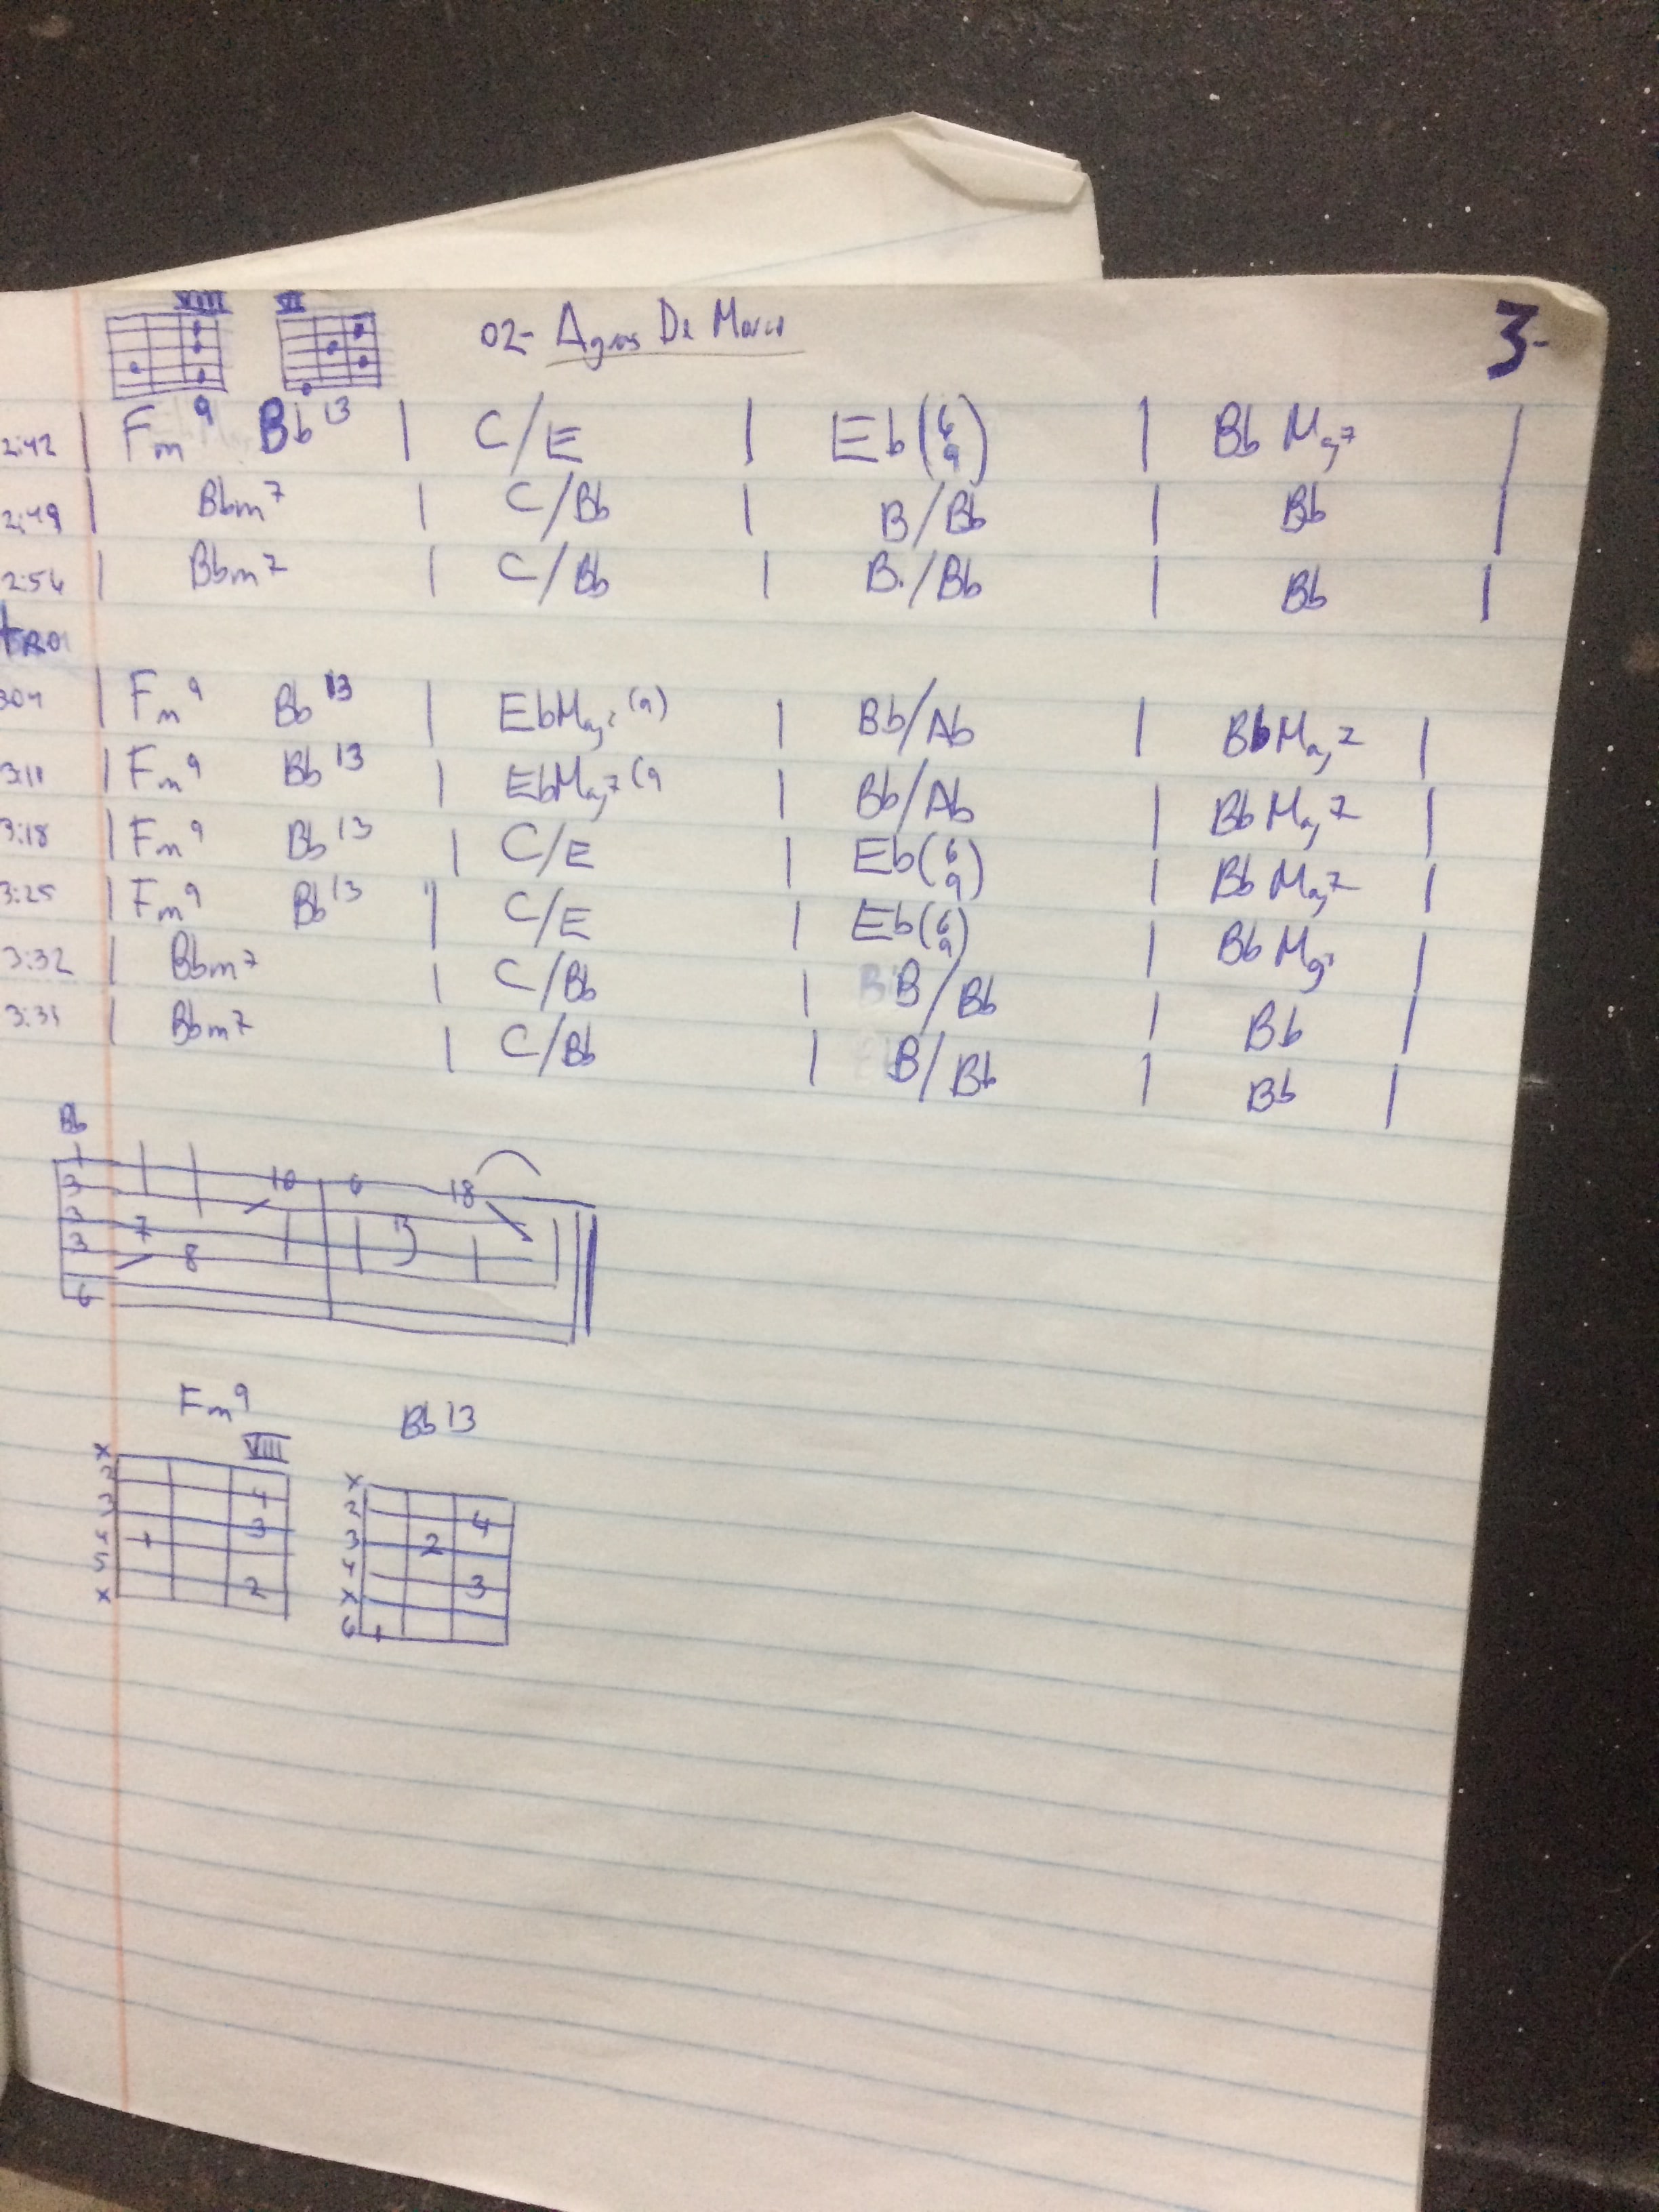 VIII VI 02- Aguas De Marco 3-
2:42 | Fm9 Bb13 | C/E | Eb(6/9) | Bb Maj7 |
2:49 | Bbm7 | C/Bb | B/Bb | Bb |
2:56 | Bbm7 | C/Bb | B/Bb | Bb |
| Fm9 Bb13 | EbMaj7(9) | Bb/Ab | BbMaj7 |
3:11 | Fm9 Bb13 | EbMaj7(9 | Bb/Ab | BbMaj7 |
3:18 | Fm9 Bb13 | C/E | Eb(6/9) | BbMaj7 |
3:25 | Fm9 Bb13 | C/E | Eb(6/9) | Bb |
3:32 | Bbm7 | C/Bb | B/Bb | Bb |
| Bbm7 | C/Bb | B/Bb | Bb |
Bb
1
3 10 6 18
3 7
3 8
6
Fm9 Bb13
VIII
x x
2 4 2 4
3 3 3 2
4 1 4 3
5 2 x
x 6 1